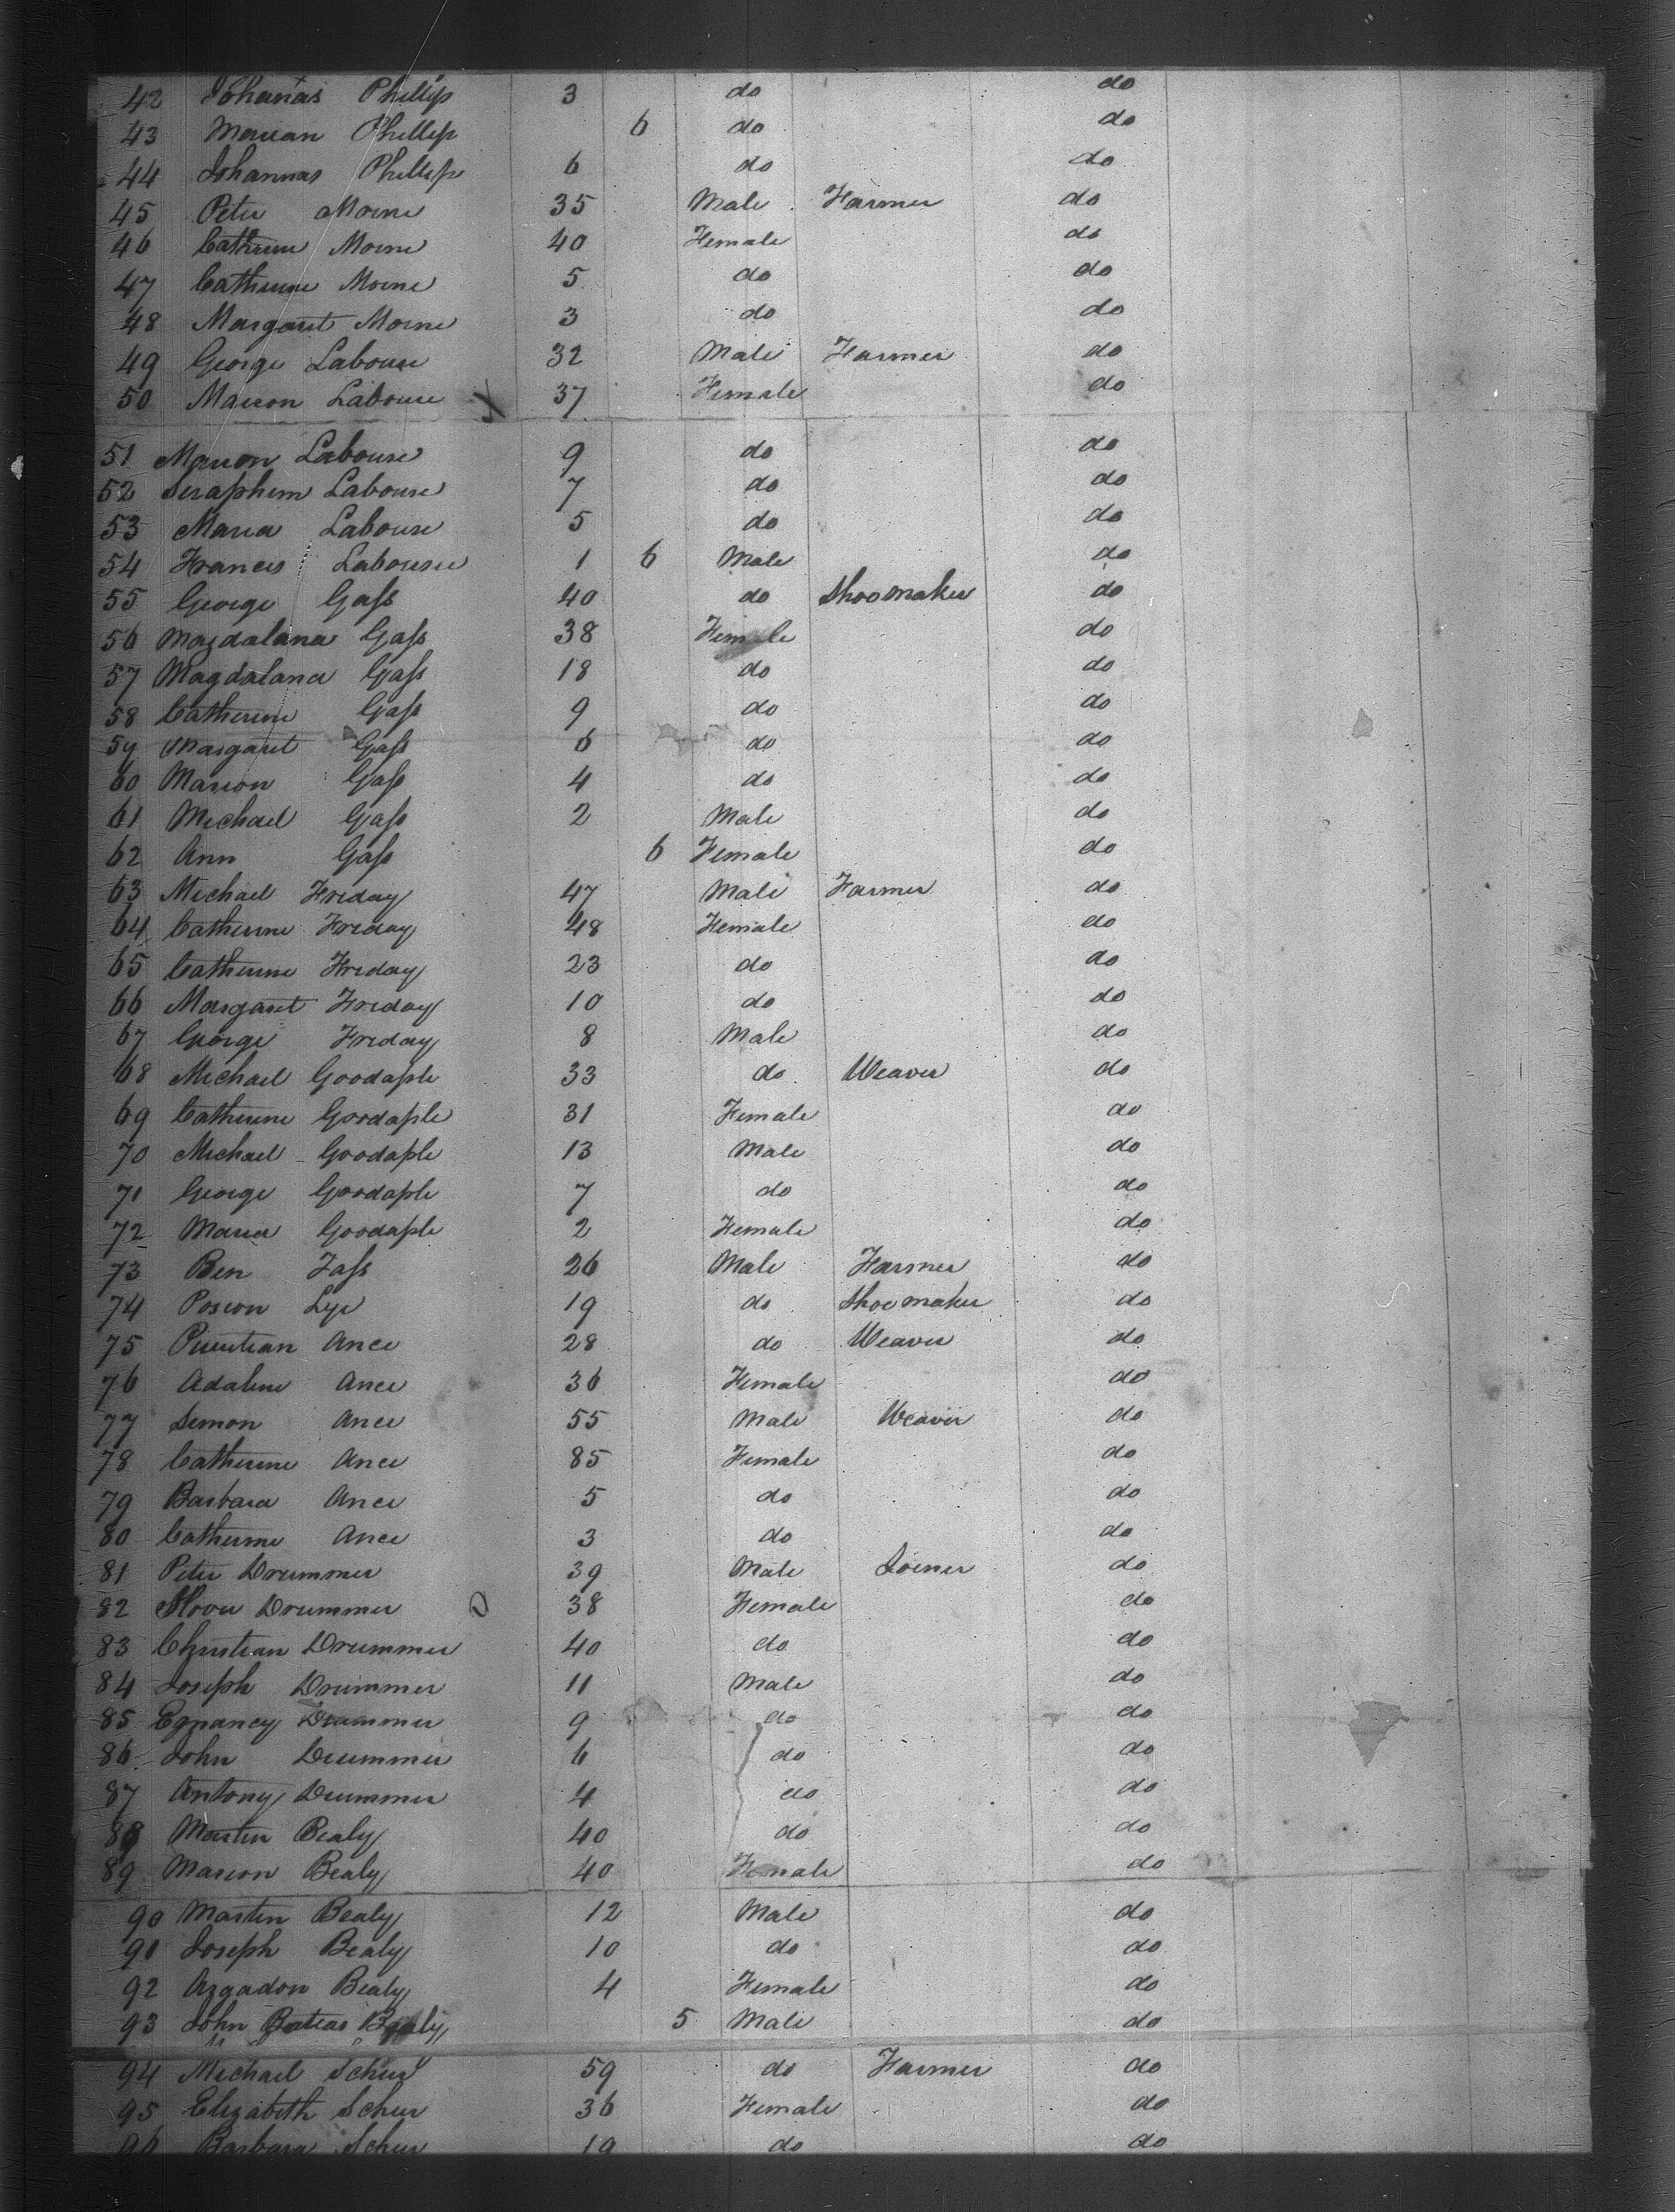 42 Johanas Phillip 3 do do
43 Marian Phillip 6 do do
44 Johannas Phillip 6 do do
45 Peter Morne 35 Male Farmer do
46 Catherine Morne 40 Female do
47 Catherine Morne 5 do do
48 Margaret Morne 3 do do
49 George Labouse 32 Male Farmer do
50 Marion Labouse 37 Female do
51 Marion Labouse 9 do do
52 Seraphim Labouse 7 do do
53 Maria Labouse 5 do do
54 Francis Labouse 1 6 Male do
55 George Gass 40 do Shoomaker do
56 Magdalana Gass 38 Female do
57 Magdalana Gass 18 do do
58 Catherine Gass 9 do do
59 Margaret Gass 6 do do
60 Marion Gass 4 do do
61 Michael Gass 2 Male do
62 Ann Gass 6 Female do
63 Michael Friday 47 Male Farmer do
64 Catherine Friday 48 Female do
65 Catherine Friday 23 do do
66 Margaret Friday 10 do do
67 George Friday 8 Male do
68 Michael Goodaple 33 do Weaver do
69 Catherine Goodaple 31 Female do
70 Michael Goodaple 13 Male do
71 George Goodaple 7 do do
72 Maria Goodaple 2 Female do
73 Ben Fass 26 Male Farmer do
74 Posion Lye 19 do Shoemaker do
75 Ance 28 do Weaver do
76 Adaline Ance 36 Female do
77 Simon Ance 55 Male Weaver do
78 Catherine Ance 85 Female do
79 Barbara Ance 5 do do
80 Catherine Ance 3 do do
81 Peter Drummer 39 Male Joiner do
82 Drummer 38 Female do
83 Christian Drummer 40 do do
84 Joseph Drummer 11 Male do
85 Drummer 9 do do
86 John Drummer 6 do do
87 Antony Drummer 4 do do
88 Martin Bealy 40 do do
89 Marion Bealy 40 Female do
90 Martin Bealy 12 Male do
91 Joseph Bealy 10 do do
92 Azgadon Bealy 4 Female do
93 John Batias Bealy 5 Male do
94 Michael Schur 59 do Farmer do
95 Elizabeth Schur 36 Female do
96 Barbara Schur 19 do do